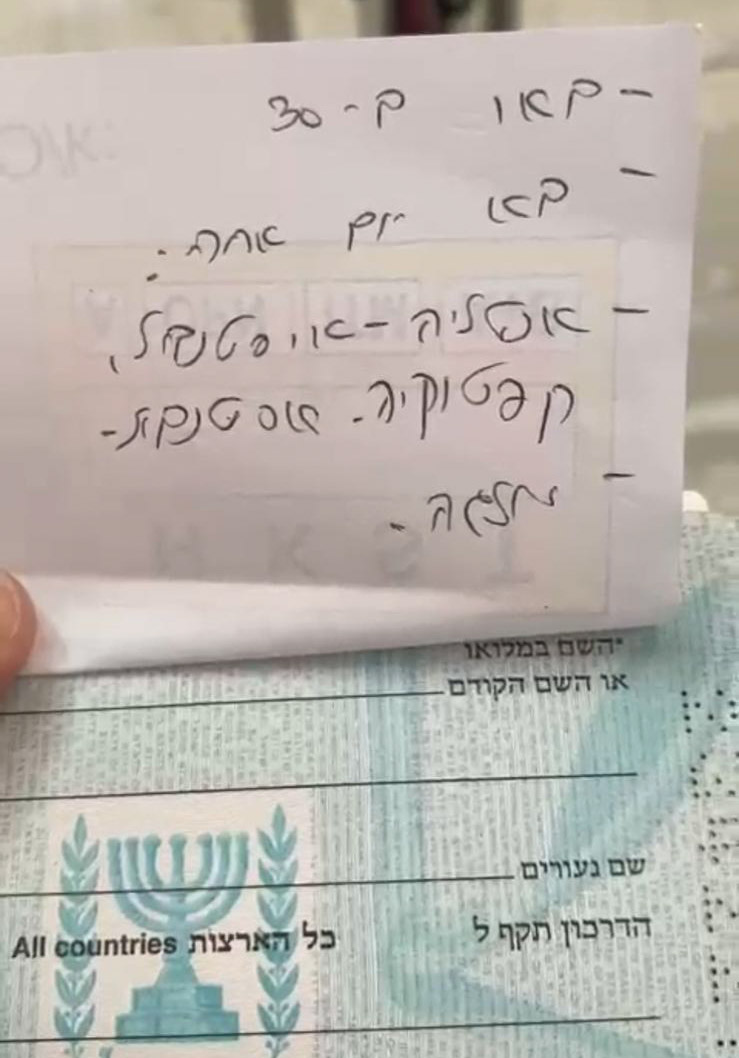 - באו ב-30
- באו יום אחרי:
- אנטליה - איסטנבול,
קפטוקיה. איסטנבול -
- מלגה.
*השם במלואו
או השם הקודם
שם נעורים
הדרכון תקף ל
כל הארצות All countries